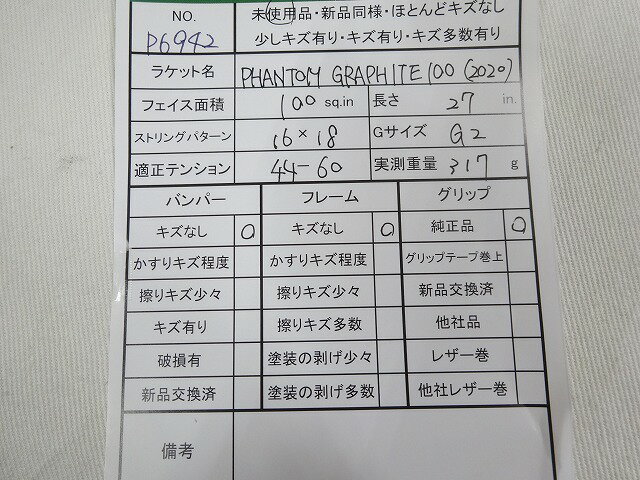 NO. 未使用品・新品同様・ほとんどキズなし
P6942 少しキズ有り・キズ有り・キズ多数有り
ラケット名 PHANTOM GRAPHITE 100 (2020)
フェイス面積 100 sq.in 長さ 27 in.
ストリングパターン 16×18 Gサイズ G2
適正テンション 44-60 実測重量 317 g
バンパー フレーム グリップ
キズなし ○ キズなし ○ 純正品 ○
かすりキズ程度 かすりキズ程度 グリップテープ巻上
擦りキズ少々 擦りキズ少々 新品交換済
キズ有り 擦りキズ多数 他社品
破損有 塗装の剥げ少々 レザー巻
新品交換済 塗装の剥げ多数 他社レザー巻
備考